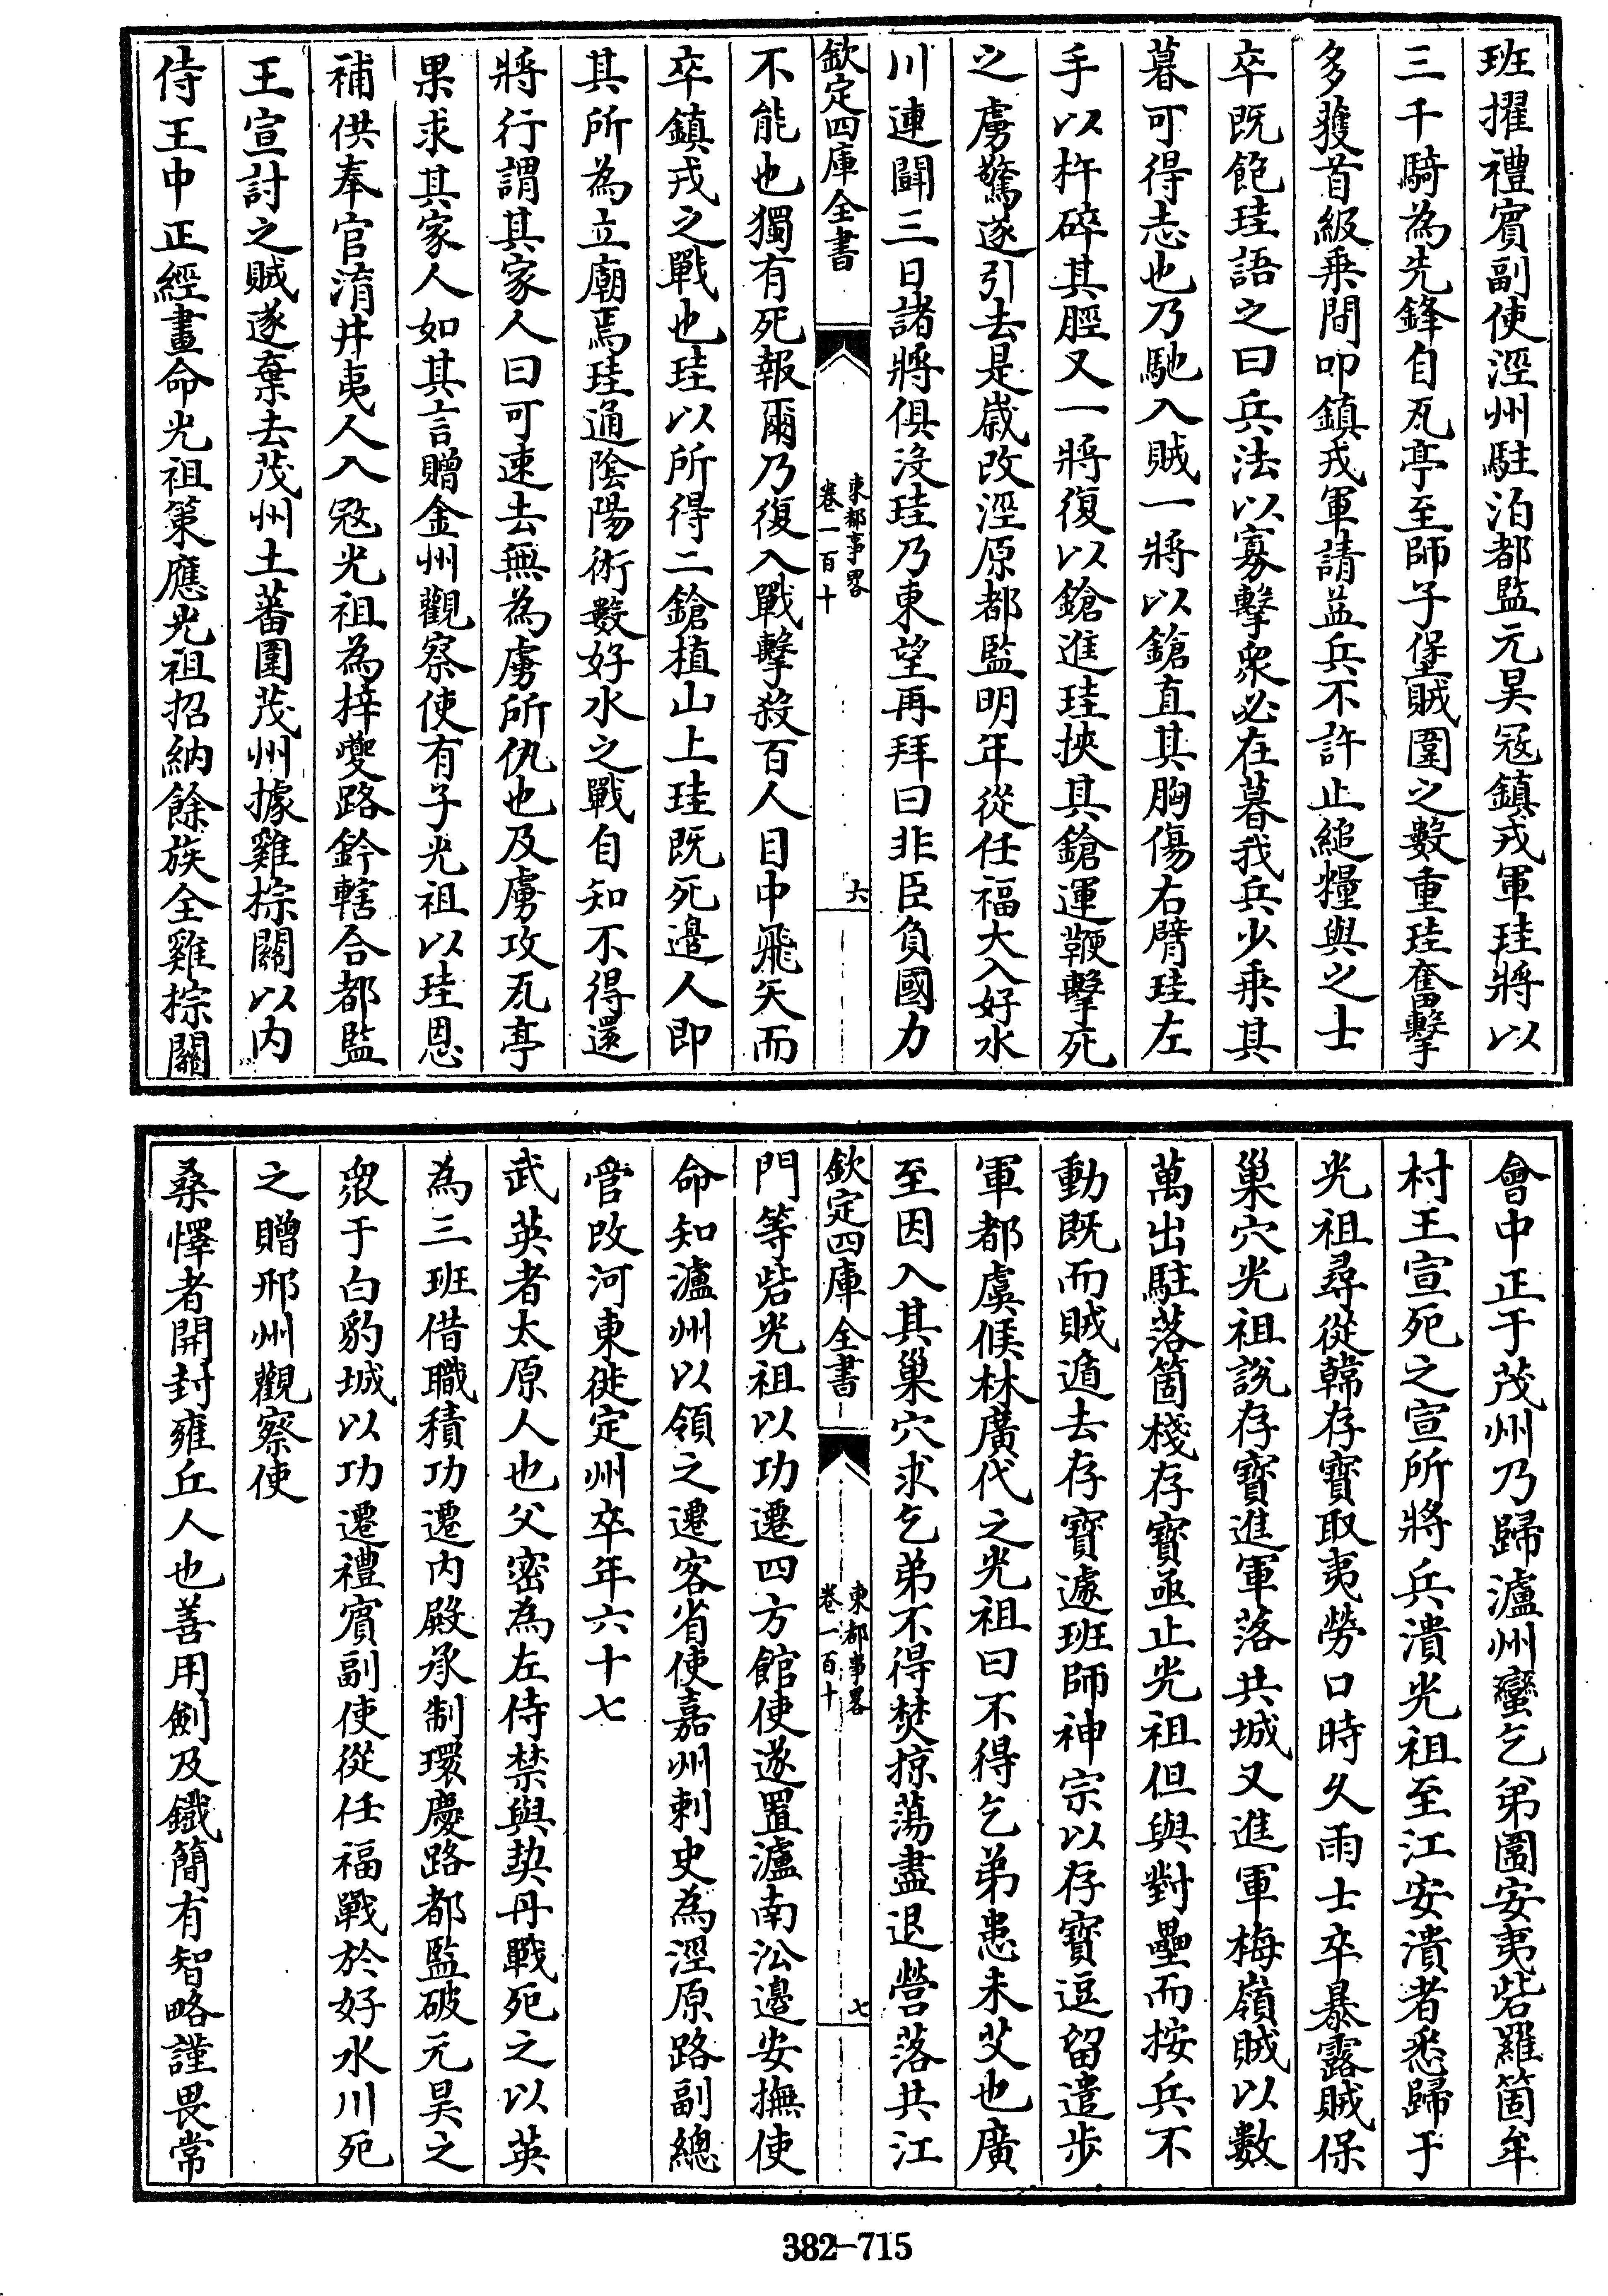 班擢禮賓副使涇州駐泊都監元昊冦鎮戎軍珪將以
三千騎為先鋒自瓦亭至師子堡賊圍之數重珪奮擊
多獲首級乗間叩鎮戎軍請益兵不許止縋糧與之士
卒既飽珪語之曰兵法以寡擊衆必在暮我兵少乗其
暮可得志也乃馳入賊一將以鎗直其胸傷右臂珪左
手以杵碎其脛又一將復以鎗進珪挾其鎗運鞭擊死
之虜驚遂引去是嵗改涇原都監明年從任福大入好水
川連鬪三日諸將俱沒珪乃東望再拜曰非臣負國力
欽定四庫全書
東都事畧
卷一百十
六
不能也獨有死報爾乃復入戰擊殺百人目中飛矢而
卒鎮戎之戰也珪以所得二鎗植山上珪既死邉人即
其所為立廟焉珪通陰陽術數好水之戰自知不得還
將行謂其家人曰可速去無為虜所仇也及虜攻瓦亭
果求其家人如其言贈金州觀察使有子光祖以珪恩
補供奉官淯井夷人入冦光祖為梓夔路鈐轄合都監
王宣討之賊遂棄去茂州土蕃圍茂州據雞棕關以内
侍王中正經畫命光祖策應光祖招納餘族全雞棕關
會中正于茂州乃歸瀘州蠻乞弟圍安夷砦羅箇牟
村王宣死之宣所將兵潰光祖至江安潰者悉歸于
光祖尋從韓存寶取夷勞口時久雨士卒暴露賊保
巢穴光祖説存寶進軍落共城又進軍梅嶺賊以數
萬出駐落箇棧存寳亟止光祖但與對壘而按兵不
動既而賊遁去存寳遽班師神宗以存寳逗留遣步
軍都虞候林廣代之光祖曰不得乞弟患未艾也廣
至因入其巢穴求乞弟不得焚掠蕩盡退營落共江
欽定四庫全書
東都事畧
卷一百十
七
門等砦光祖以功遷四方館使遂置瀘南沿邉安撫使
命知瀘州以領之遷客省使嘉州刺史為涇原路副總
管改河東徙定州卒年六十七
武英者太原人也父密為左侍禁與契丹戰死之以英
為三班借職積功遷内殿承制環慶路都監破元昊之
衆于白豹城以功遷禮賓副使從任福戰於好水川死
之贈邢州觀察使
桑懌者開封雍丘人也善用劍及鐵簡有智略謹畏常
382-715